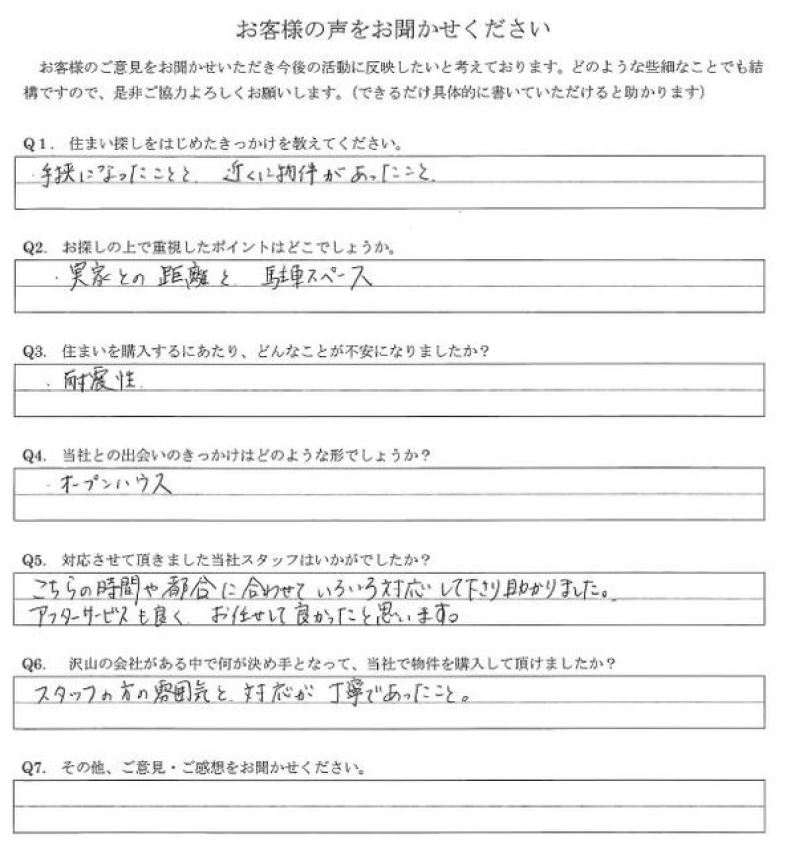 お客様の声をお聞かせください
お客様のご意見をお聞かせいただき今後の活動に反映したいと考えております。どのような些細なことでも結
構ですので、是非ご協力よろしくお願いします。（できるだけ具体的に書いていただけると助かります）
Q1. 住まい探しをはじめたきっかけを教えてください。
・手狭になったことと、近くに物件があったこと。
Q2. お探しの上で重視したポイントはどこでしょうか。
・実家との距離と、駐車スペース
Q3. 住まいを購入するにあたり、どんなことが不安になりましたか？
・耐震性。
Q4. 当社との出会いのきっかけはどのような形でしょうか？
・オープンハウス
Q5. 対応させて頂きました当社スタッフはいかがでしたか？
こちらの時間や都合に合わせていろいろ対応して下さり助かりました。
アフターサービスも良く、お任せして良かったと思います。
Q6. 沢山の会社がある中で何が決め手となって、当社で物件を購入して頂けましたか？
スタッフの方の雰囲気と、対応が丁寧であったこと。
Q7. その他、ご意見・ご感想をお聞かせください。